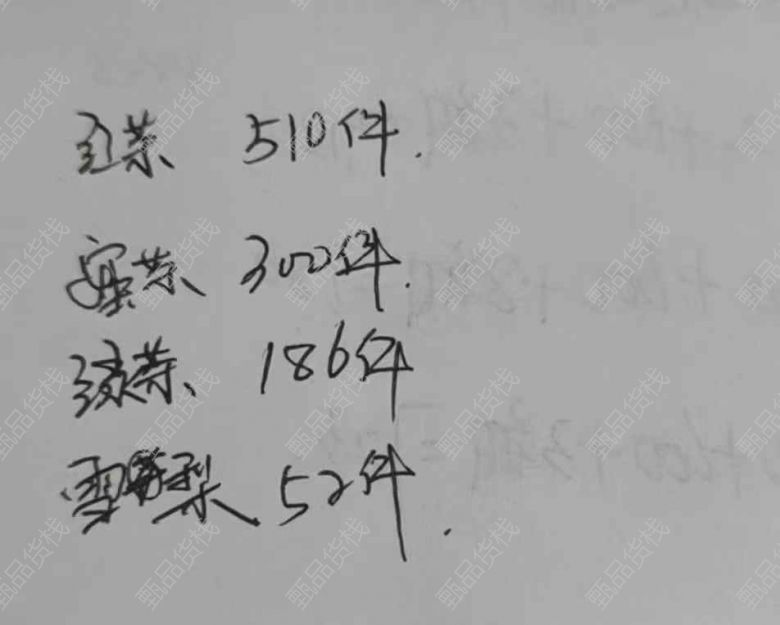 红茶、 510件.
蜜茶、 300件.
绿茶、 186件
雪梨、 52件.
甄品货栈